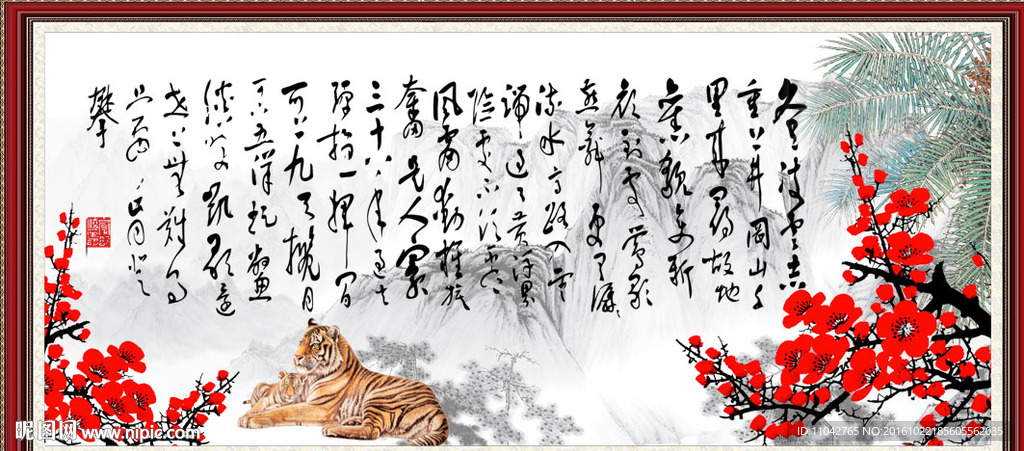 久有凌雲志
重上井岡山千
里来尋故地
舊貌變新
顏到處鶯歌
燕舞更有潺潺
流水高路入雲
端過了黄洋界
險處不須看
風雷動旌旗
奮是人寰
三十八年過去
彈指一揮間
可上九天攬月
可下五洋捉鱉
談笑凱歌還
世上無難事
只要肯登
攀
昵图网 www.nipic.com
ID:11042765 NO:20161022185605562035